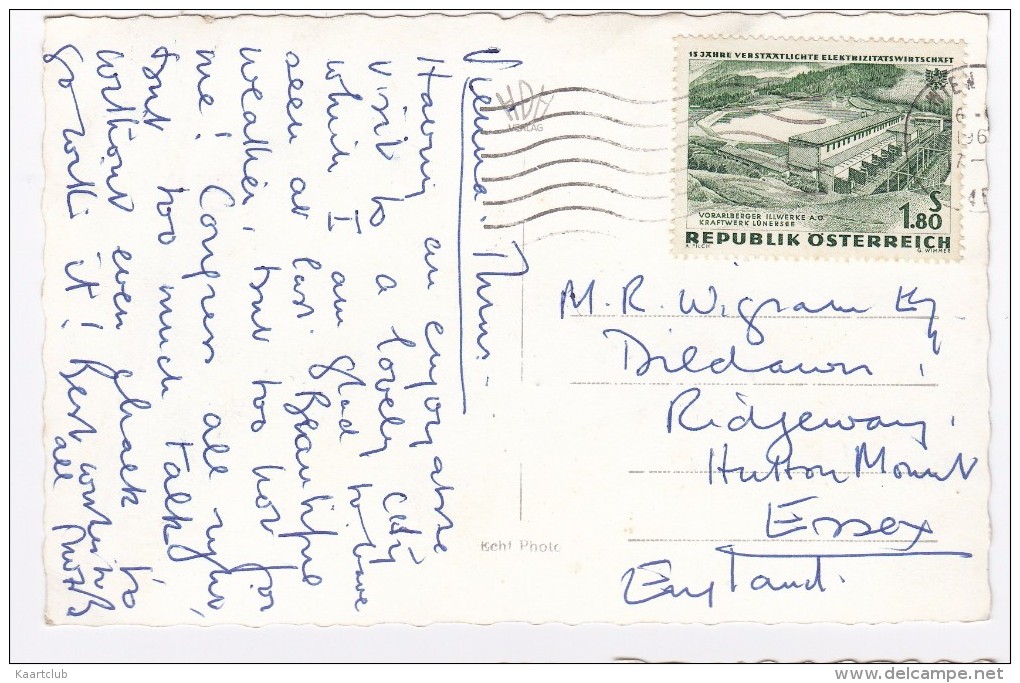 Vienna. Thurs.
Having an enjoyable
visit to a lovely city
which I am glad to have
seen at last. Beautiful
weather, but too hot for
me! Congress all right,
but too much talk,
without even chalk to
go with it! Best wishes to
all
HDH
VERLAG
15 JAHRE VERSTAATLICHTE ELEKTRIZITÄTSWIRTSCHAFT
VORARLBERGER ILLWERKE A.G.
KRAFTWERK LÜNERSEE
S
1.80
REPUBLIK ÖSTERREICH
A. PILCH G. WIMMER
M. R. Wigram Esq
Dildawn,
Ridgeway,
Hutton Mount
Essex
England.
Photo
Kaartclub
www.delcampe.net